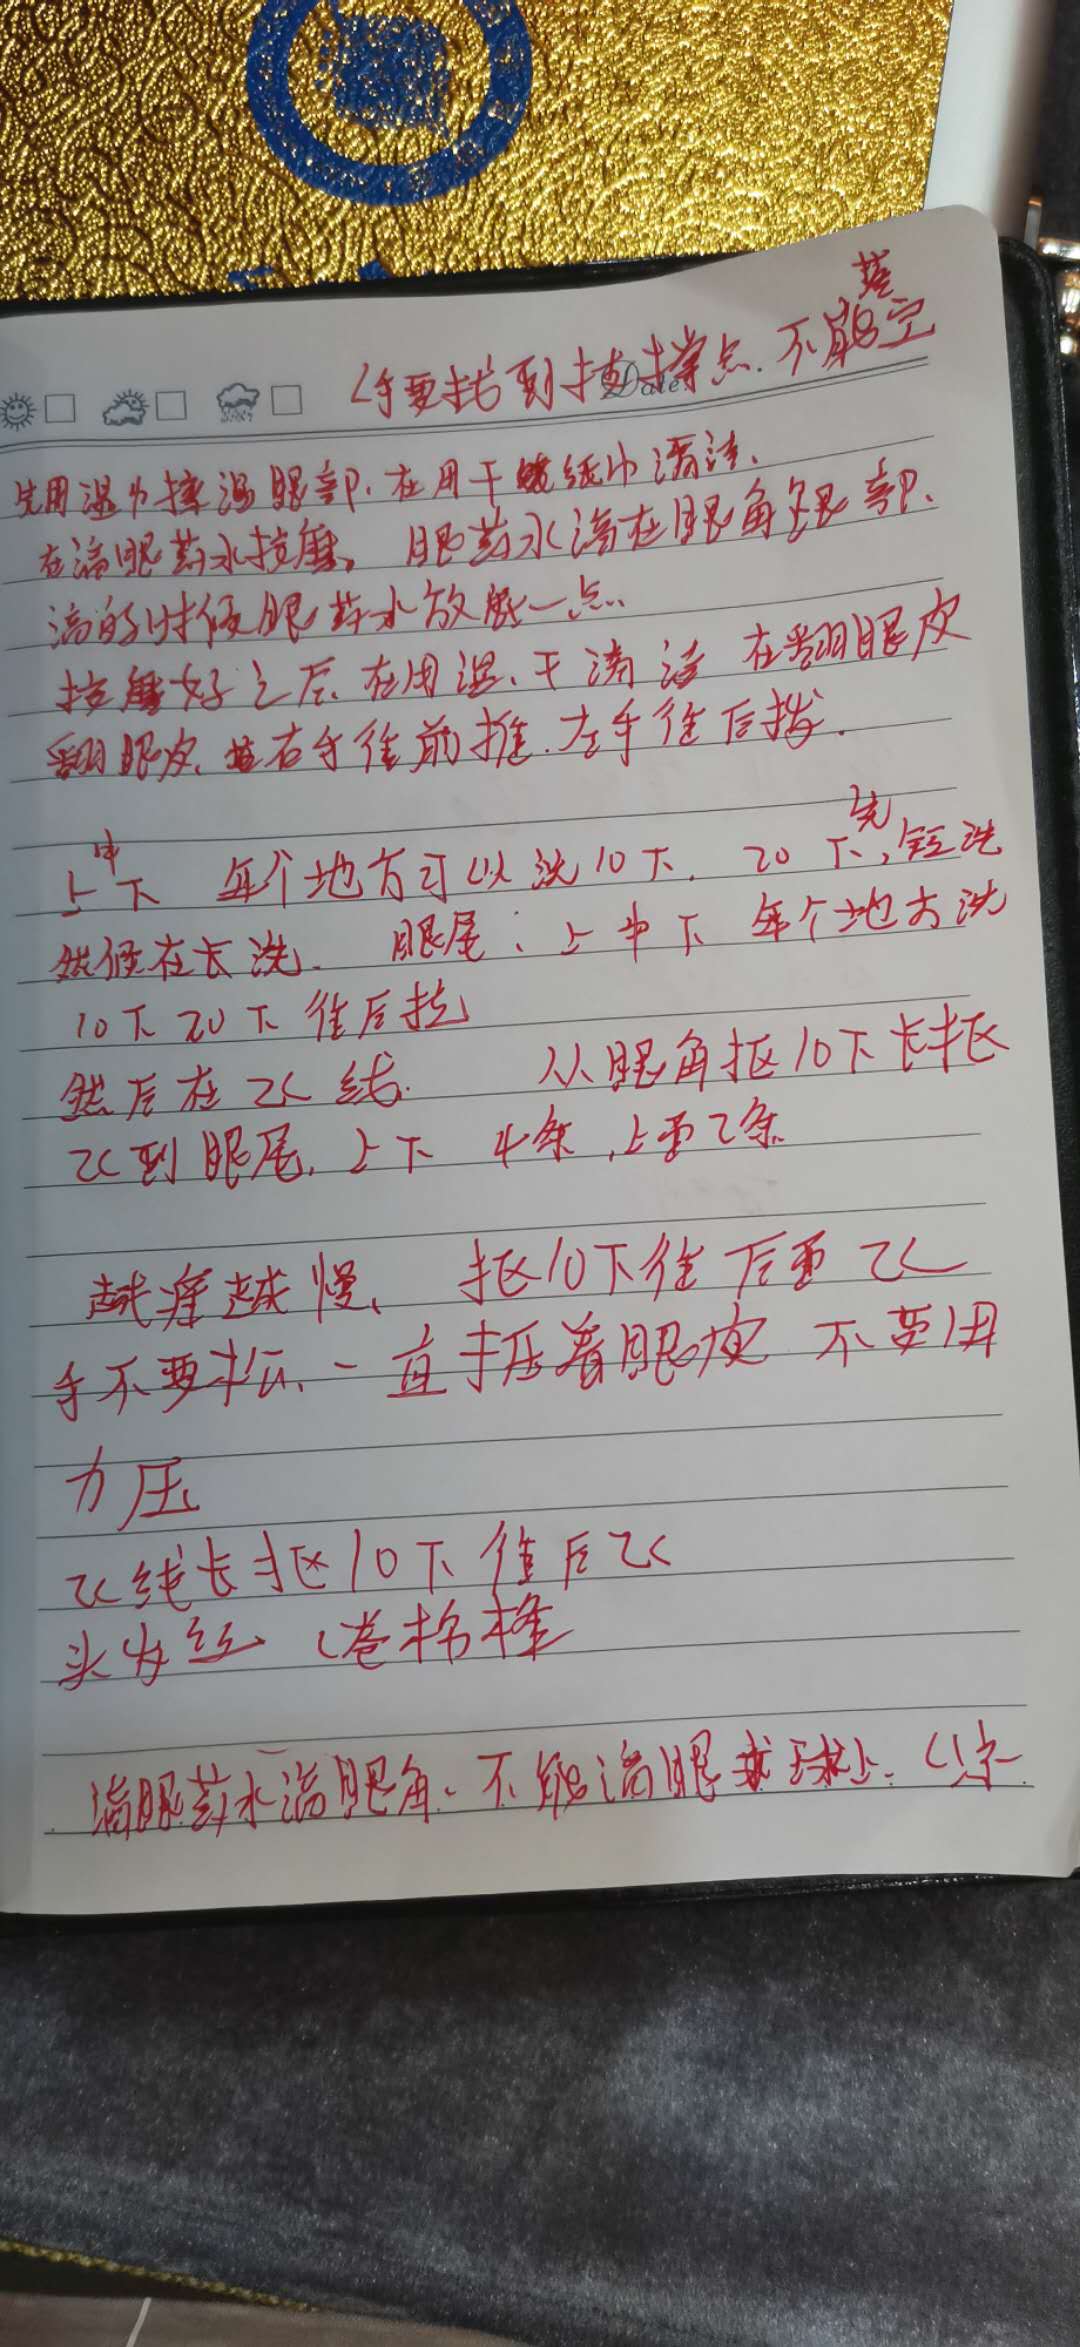 手要找到支撑点.不能落空
Date
先用湿巾擦湿眼部.在用干纸巾清洁.
在滴眼药水按摩, 眼药水滴在眼角眼部.
滴的时候眼药水放低一点.
按摩好之后.在用湿.干清洁 在翻眼皮
翻眼皮.右手往前推.左手往后拨.
上中下 每个地方可以洗10下. 20下,先短洗
然候在长洗. 眼尾:上中下 每个地方洗
10下20下往后
然后在 线. 从眼角抠10下长抠
到眼尾.上下 4条,上面2条
越痒越慢、 抠10下往后面
手不要松.一直压着眼皮 不要用
力压
线长抠10下往后
头发丝 (卷棉棒
滴眼药水滴眼角.不能滴眼球上.